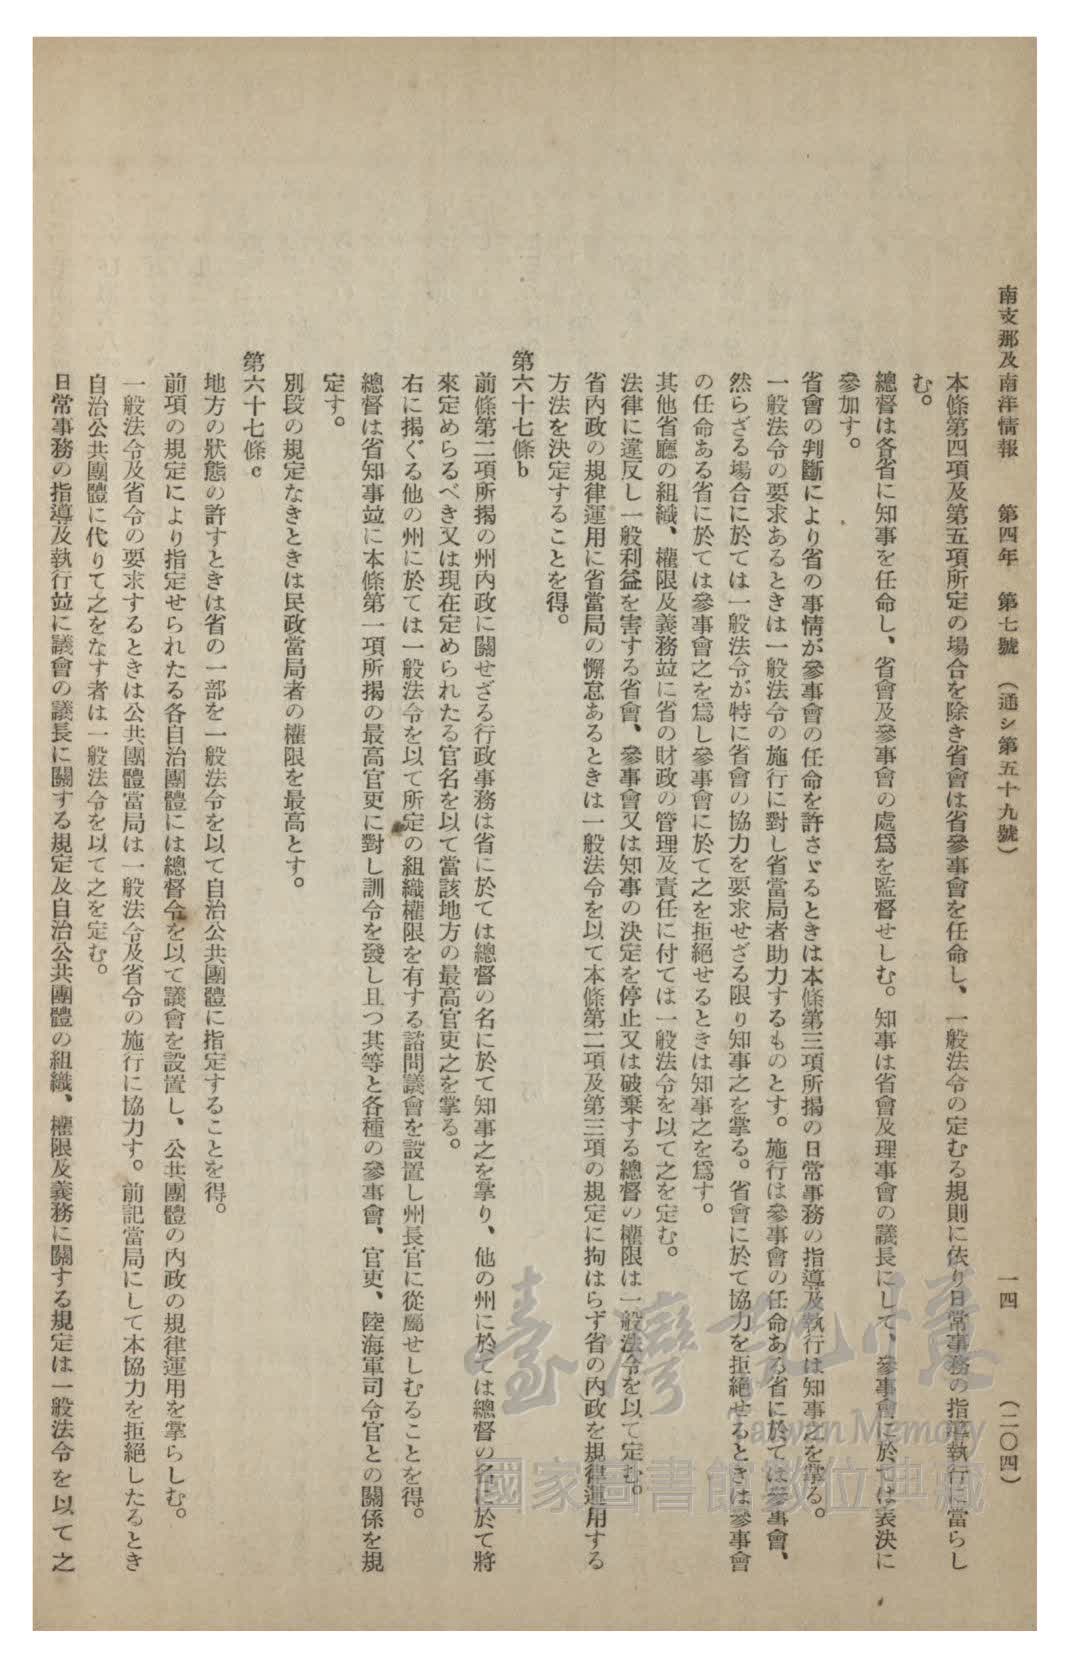 南支那及南洋情報　第四年　第七號　（通シ第五十九號）　一四　（二〇四）
本條第四項及第五項所定の場合を除き省會は省參事會を任命し、一般法令の定むる規則に依り日常事務の指導執行に當らし
む。
總督は各省に知事を任命し、省會及參事會の處爲を監督せしむ。知事は省會及理事會の議長にして、參事會に於ては表決に
參加す。
省會の判斷により省の事情が參事會の任命を許さゞるときは本條第三項所揭の日常事務の指導及執行は知事之を掌る。
一般法令の要求あるときは一般法令の施行に對し省當局者助力するものとす。施行は參事會の任命ある省に於ては參事會、
然らざる場合に於ては一般法令が特に省會の協力を要求せざる限り知事之を掌る。省會に於て協力を拒絕せるときは參事會
の任命ある省に於ては參事會之を爲し參事會に於て之を拒絕せるときは知事之を爲す。
其他省廳の組織、權限及義務竝に省の財政の管理及責任に付ては一般法令を以て之を定む。
法律に違反し一般利益を害する省會、參事會又は知事の決定を停止又は破棄する總督の權限は一般法令を以て定む。
省內政の規律運用に省當局の懈怠あるときは一般法令を以て本條第二項及第三項の規定に拘はらず省の內政を規律運用する
方法を決定することを得。
第六十七條b
前條第二項所揭の州內政に關せざる行政事務は省に於ては總督の名に於て知事之を掌り、他の州に於ては總督の名に於て將
來定めらるべき又は現在定められたる官名を以て當該地方の最高官吏之を掌る。
右に揭ぐる他の州に於ては一般法令を以て所定の組織權限を有する諮問議會を設置し州長官に從屬せしむることを得。
總督は省知事竝に本條第一項所揭の最高官吏に對し訓令を發し且つ其等と各種の參事會、官吏、陸海軍司令官との關係を規
定す。
別段の規定なきときは民政當局者の權限を最高とす。
第六十七條c
地方の狀態の許すときは省の一部を一般法令を以て自治公共團體に指定することを得。
前項の規定により指定せられたる各自治團體には總督令を以て議會を設置し、公共團體の內政の規律運用を掌らしむ。
一般法令及省令の要求するときは公共團體當局は一般法令及省令の施行に協力す。前記當局にして本協力を拒絕したるとき
自治公共團體に代りて之をなす者は一般法令を以て之を定む。
日常事務の指導及執行竝に議會の議長に關する規定及自治公共團體の組織、權限及義務に關する規定は一般法令を以て之
臺灣記憶
Taiwan Memory
國家圖書館數位典藏